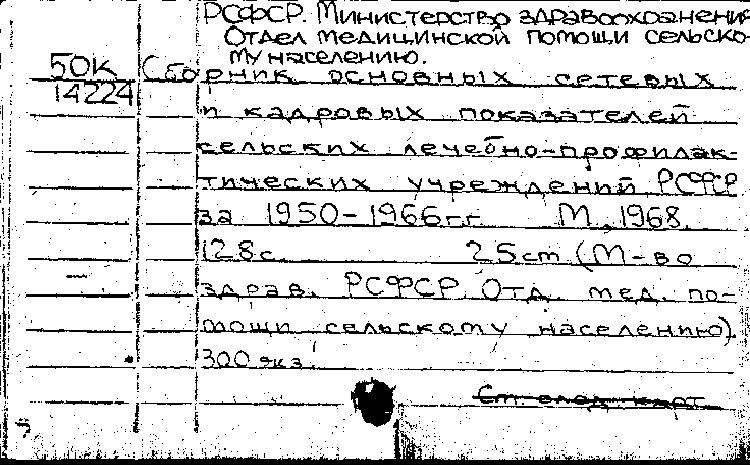 РСФСР. Министерство здравоохранения
Отдел медицинской помощи сельско-
му населению.
50к Сборник основных сетевых
14224 и кадровых показателей
сельских лечебно-профилак-
тических учреждений РСФСР
за 1950-1966гг. М., 1968.
128с. 25cm (М-во
здрав. РСФСР. Отд. мед. по-
мощи сельскому населению)
300 экз.
См. след. карт.